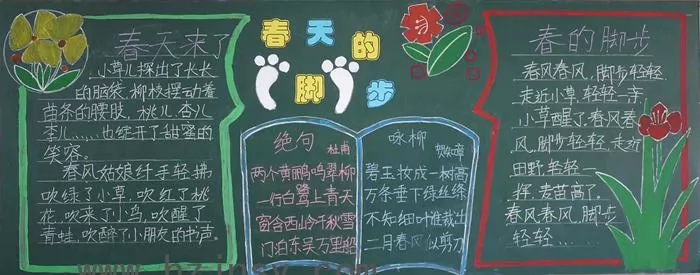 春天来了
小草儿探出了长长
的脑袋,柳枝摆动着
苗条的腰肢,桃儿、杏儿
李儿……,也绽开了甜蜜的
笑容。
春风姑娘纤手轻拂
吹绿了小草,吹红了桃
花,吹来了小鸟,吹醒了
青蛙,吹醉了小朋友的书声。
春天的
脚步
绝句
杜甫
两个黄鹂鸣翠柳
一行白鹭上青天
窗含西山令千秋雪
门泊东吴万里船
咏柳
贺知章
碧玉妆成一树高
万条垂下绿丝绦
不知细叶谁裁出
二月春风似剪刀
春的脚步
春风春风,脚步轻轻
走近小草,轻轻一亲,
小草醒了。春风春
风,脚步轻轻,走近
田野,轻轻一
挥,麦苗高了。
春风春风,脚步
轻轻……